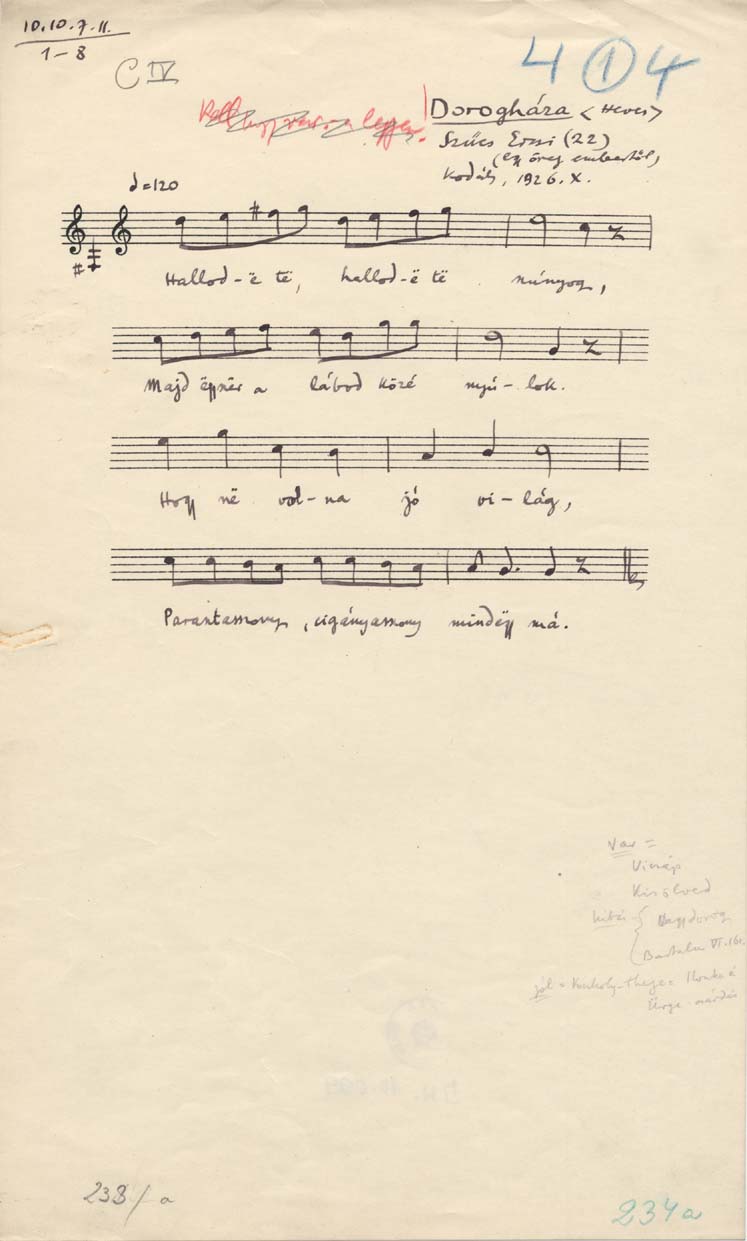 10.10.7.11.
1–8
C IV
4 1 4
Dorogháza <Heves>
Szűcs Erzsi (22)
(egy öreg embertől)
Kodály, 1926. X.
♩=120
Hallod-ë të, hallod-ë të núnyog,
Majd ëccër a lábod közé nyú-lok.
Hogy në vol-na jó vi-lág,
Parasztasszony, cigányasszony mindëgy má.
Var =
Visnáp
Kisölved
Nagydorog
Bartalus VI. 161.
jól =
238/a
234a